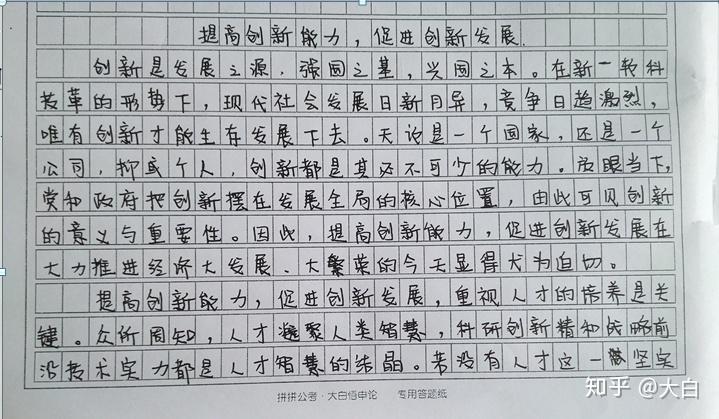 提高创新能力，促进创新发展.
创新是发展之源，强国之基，兴国之本。在新一轮科
技革的形势下，现代社会发展日新月异，竞争日趋激烈，
唯有创新才能生存发展下去。无论是一个国家，还是一个
公司，抑或个人，创新都是其必不可少的能力。放眼当下，
党和政府把创新摆在发展全局的核心位置，由此可见创新
的意义与重要性。因此，提高创新能力，促进创新发展在
大力推进经济大发展、大繁荣的今天显得尤为迫切。
提高创新能力，促进创新发展，重视人才的培养是关
键。众所周知，人才凝聚人类智慧，科研创新精和战略前
沿技术实力都是人才智慧的结晶。若没有人才这一坚实
拼拼公考·大白悟申论 专用答题纸
知乎 @大白